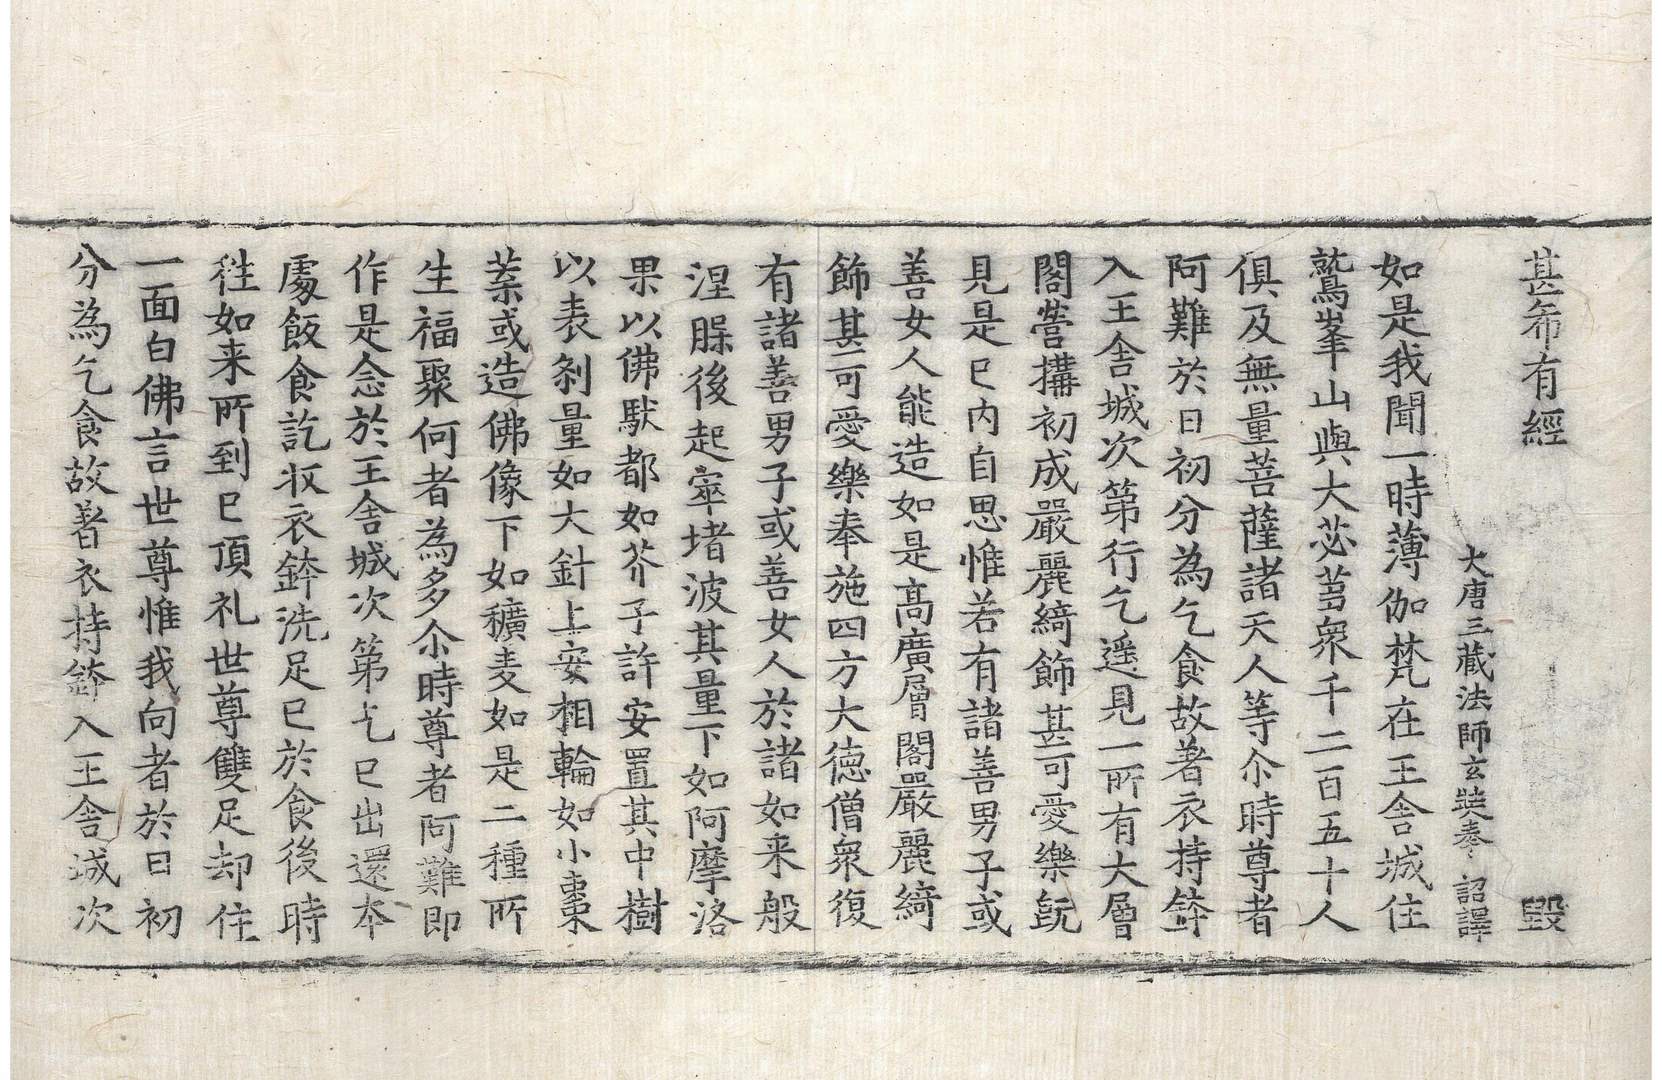 甚希有經 毀
大唐三藏法師玄奘奉 詔譯
如是我聞一時薄伽梵在王舍城住
鷲峯山與大苾蒭衆千二百五十人
俱及無量菩薩諸天人等尒時尊者
阿難於日初分為乞食故著衣持鉢
入王舍城次第行乞遥見一所有大層
閣營搆初成嚴麗綺飾甚可愛樂旣
見是已內自思惟若有諸善男子或
善女人能造如是髙廣層閣嚴麗綺
飾甚可愛樂奉施四方大德僧衆復
有諸善男子或善女人於諸如来般
涅腺後起窣堵波其量下如阿摩洛
果以佛馱都如芥子許安置其中樹
以表刹量如大針上安相輪如小棗
葉或造佛像下如穬麦如是二種所
生福聚何者為多尒時尊者阿難即
作是念於王舍城次第乞已出還本
處飯食訖收衣鉢洗足已於食後時
徃如来所到已頂礼世尊雙足却住
一面白佛言世尊惟我向者於日初
分為乞食故著衣持鉢入王舍城次